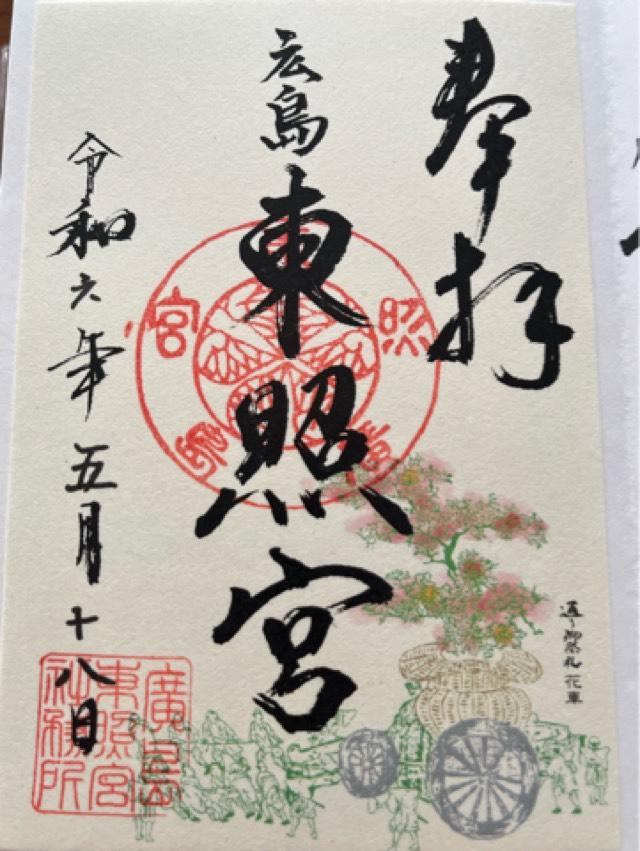 奉拝
広島
東照宮
令和六年五月十八日
通り御祭礼 花車
廣島
東照宮
社務所